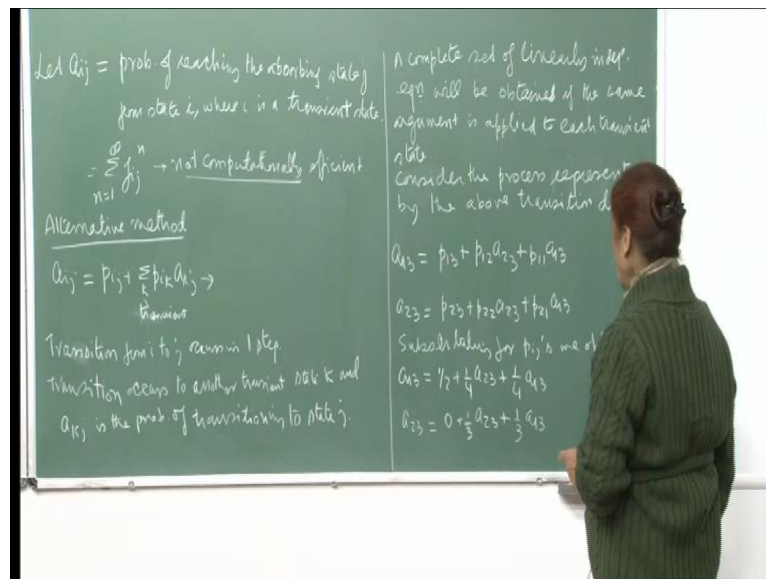 Let aij = prob. of reaching the absorbing state j
from state i, where i is a transient state.
= ∑ n=1 ∞ fij^n → not computationally efficient
Alternative method
aij = pij + ∑k pik akj →
transient
Transition from i to j occurs in 1 step
Transition occurs to another transient state k and
akj is the prob. of transitioning to state j.
A complete set of linearly indep.
eqn will be obtained if the same
argument is applied to each transient
state
Consider the process represent
by the above transition d
a13 = p13 + p12 a23 + p11 a13
a23 = p23 + p22 a23 + p21 a13
Substituting for pij's we
a13 = 1/2 + 1/4 a23 + 1/4 a13
a23 = 0 + 1/3 a23 + 1/3 a13